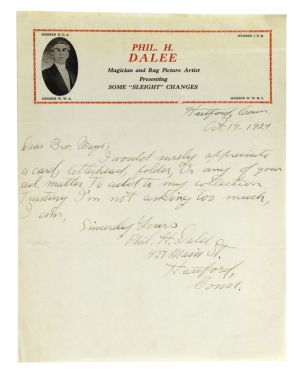 MEMBER N.C.A.
MEMBER I.B.M.
PHIL. H.
DALEE
Magician and Rag Picture Artist
Presenting
SOME "SLEIGHT" CHANGES
MEMBER W.W.A.
MEMBER W.W.B.C.
Hartford, Conn.
Oct 19. 1927
Dear Bro. Magi;
I would surely appreciate
a card, letterhead, folder, or any of your
ad. matter to add to my collection
Trusting I'm not asking too much,
I am,
Sincerely Yours
Phil. H. Dalee
427 Main St.
Hartford,
Conn.